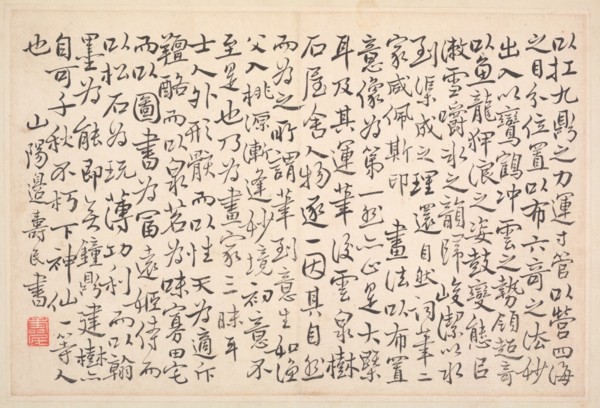 以扛九鼎之力運寸管以營四海
之目分位置以布六奇之法妙
出入以鸞鶴冲雲之勢領超奇
以魚龍狎浪之姿鼓變態以
漱雪嚼冰之韻歸峻潔以水
到渠成之理還自然詞筆二
家咸佩斯印 畫法以布置
意像為第一然亦止是大槩
耳及其運筆後雲泉樹
石屋舍人物逐一因其自然
而為之所謂筆到意生如漁
父入桃源漸逢妙境初意不
至是也乃為畫家三昧耳
士人外形骸而以性天為適斥
羶酪而以泉茗為味寡田宅
而以圖書為富遠姬侍而
以松石為玩薄功利而以翰
墨為能即無鐘鼎建樹亦
自可千秋不朽下神仙一等人
也 山陽邊壽民書